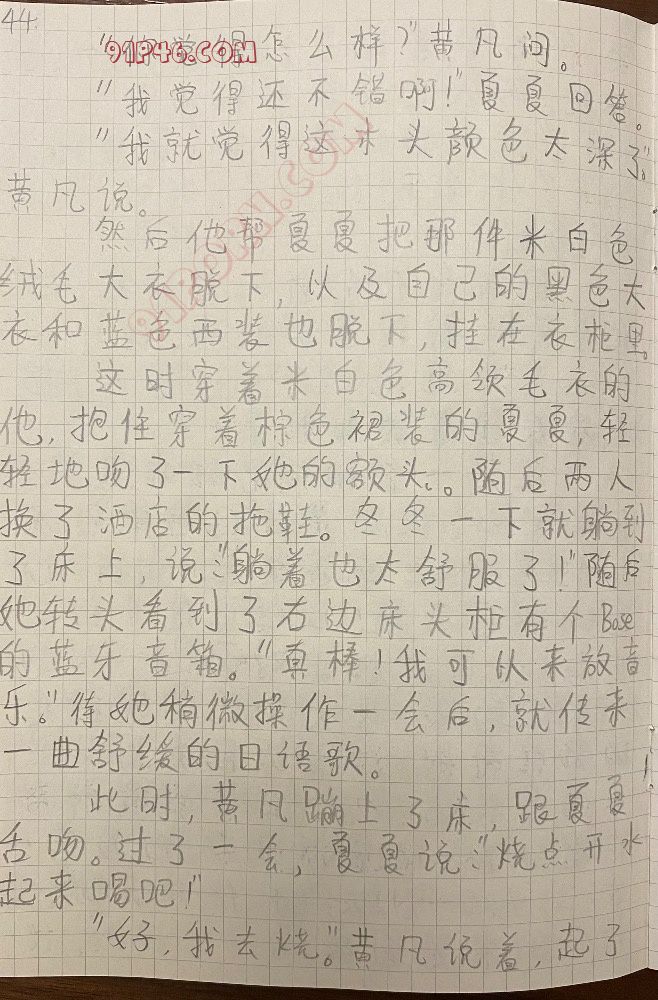 44.
91P46.COM
怎么样?"黄凡问。
"我觉得还不错啊!"夏夏回答。
"我就觉得这木头颜色太深了。"
黄凡说。
91PORN.COM
然后他帮夏夏把那件米白色
绒毛大衣脱下,以及自己的黑色大
衣和蓝色西装也脱下,挂在衣柜里。
这时穿着米白色高领毛衣的
他,抱住穿着棕色裙装的夏夏,轻
轻地吻了一下她的额头。。随后两人
换了酒店的拖鞋。冬冬一下就躺到
了床上,说:"躺着也太舒服了!"随后
她转头看到了右边床头柜有个Bose
的蓝牙音箱。"真棒!我可以来放音
乐。"待她稍微操作一会后,就传来
一曲舒缓的日语歌。
此时,黄凡蹦上了床,跟夏夏
舌吻。过了一会,夏夏说:"烧点开水
起来喝吧!"
"好,我去烧。"黄凡说着,起了